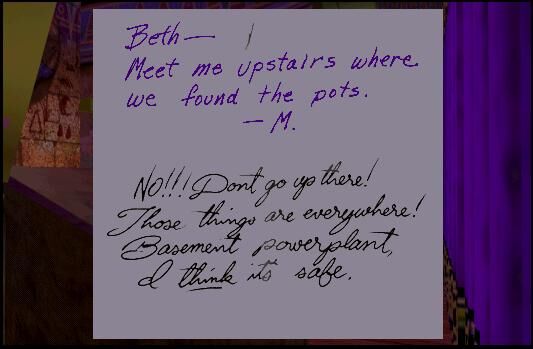 Beth—
Meet me upstairs where
we found the pots.
— M.
NO!!! Dont go up there!
Those things are everywhere!
Basement powerplant,
I think it's safe.